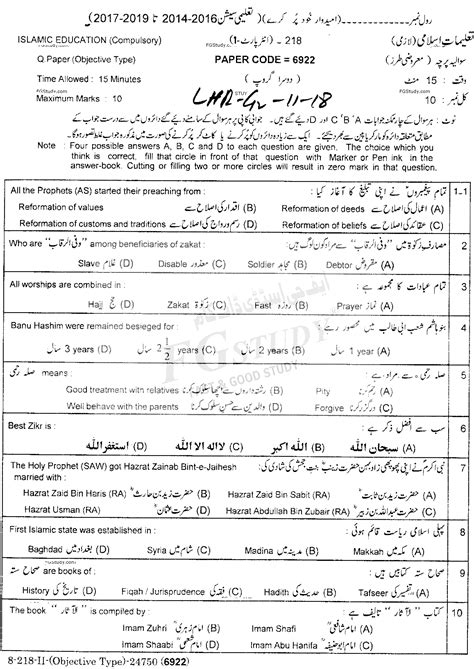 رول نمبر (امیدوار خود پر کرے) (تعلیمی سیشن 2016-2014 تا 2019-2017)
ISLAMIC EDUCATION (Compulsory) 218 - (انٹر پارٹ-I) تعلیمات اسلامی (لازمی)
FGStudy.com FGStudy.com
Q.Paper (Objective Type) PAPER CODE = 6922 سوالیہ پرچہ (معروضی طرز)
Time Allowed : 15 Minutes (دوسرا گروپ) وقت : 15 منٹ
FGStudy.com
Maximum Marks : 10 LHR-G2-11-18 کل نمبر : 10
نوٹ : ہر سوال کے چار ممکنہ جوابات A، B، C اور D دیئے گئے ہیں۔ جوابی کاپی پر ہر سوال کے سامنے دیئے گئے دائروں میں سے درست جواب کے
مطابق متعلقہ دائرہ کو مارکر یا پین سے بھر دیجئے۔ ایک سے زیادہ دائروں کو پُر کرنے یا کاٹ کر پُر کرنے کی صورت میں مذکورہ جواب غلط تصور ہو گا۔
Note : Four possible answers A, B, C and D to each question are given. The choice which you
think is correct, fill that circle in front of that question with Marker or Pen ink in the
answer-book. Cutting or filling two or more circles will result in zero mark in that question.
All the Prophets (AS) started their preaching from : تمام پیغمبروں نے اپنی تبلیغ کا آغاز کیا : 1-1
Reformation of values اقدار کی اصلاح سے (B) Reformation of deeds اعمال کی اصلاح سے (A)
Reformation of customs and traditions رسم و رواج کی اصلاح سے (D) Reformation of beliefs عقائد کی اصلاح سے (C)
Who are "وفی الرقاب" among beneficiaries of zakat : مصارف زکوٰۃ میں "وفی الرقاب" سے مراد کون لوگ ہیں : 2
Slave غلام (D) Disable معذور (C) Soldier مجاہد (B) Debtor مقروض (A)
All worships are combined in : تمام عبادات کا مجموعہ ہے : 3
Hajj حج (D) Zakat زکوٰۃ (C) Fast روزہ (B) Prayer نماز (A)
Banu Hashim were remained besieged for : بنو ہاشم شعب ابی طالب میں محصور رہے : 4
3 years سال (D) 2 1/2 years سال (C) 2 years سال (B) 1 year سال (A)
صلہ رحمی means : صلہ رحمی سے مراد ہے : 5
Good treatment with relatives رشتہ داروں سے اچھا سلوک کرنا (B) Pity رحم کرنا (A)
Well behave with the parents والدین سے حسن سلوک کرنا (D) Forgive درگزر کرنا (C)
Best Zikr is : سب سے افضل ذکر ہے : 6
استغفر اللہ (D) لا الہ الا اللہ (C) اللہ اکبر (B) سبحان اللہ (A)
The Holy Prophet (SAW) got Hazrat Zainab Bint-e-Jaihesh نبی اکرم نے اپنی پھوپھی زاد بہن حضرت زینب بنت جحش کی شادی کی : 7
married with :
Hazrat Zaid Bin Haris (RA) حضرت زید بن حارث (B) Hazrat Zaid Bin Sabit (RA) حضرت زید بن ثابت (A)
Hazrat Usman (RA) حضرت عثمان (D) Hazrat Abdullah Bin Zubair (RA) حضرت عبداللہ بن زبیر (C)
First Islamic state was established in : پہلی اسلامی ریاست قائم ہوئی : 8
Baghdad بغداد میں (D) Syria شام میں (C) Madina مدینہ میں (B) Makkah مکہ میں (A)
FGStudy.com
صحاح ستہ are books of : صحاح ستہ کتابیں ہیں : 9
History تاریخ کی (D) Fiqah / Jurisprudence فقہ کی (C) Hadith حدیث کی (B) Tafseer تفسیر کی (A)
The book "الآثار" is compiled by : کتاب "الآثار" تالیف ہے : 10
Imam Zuhri امام زہری (B) Imam Shafi امام شافعی (A)
Imam Shaabi امام شعبی (D) Imam Abu Hanifa امام ابو حنیفہ (C)
8-218-II-(Objective Type)-24750 (6922)
FG STUDY